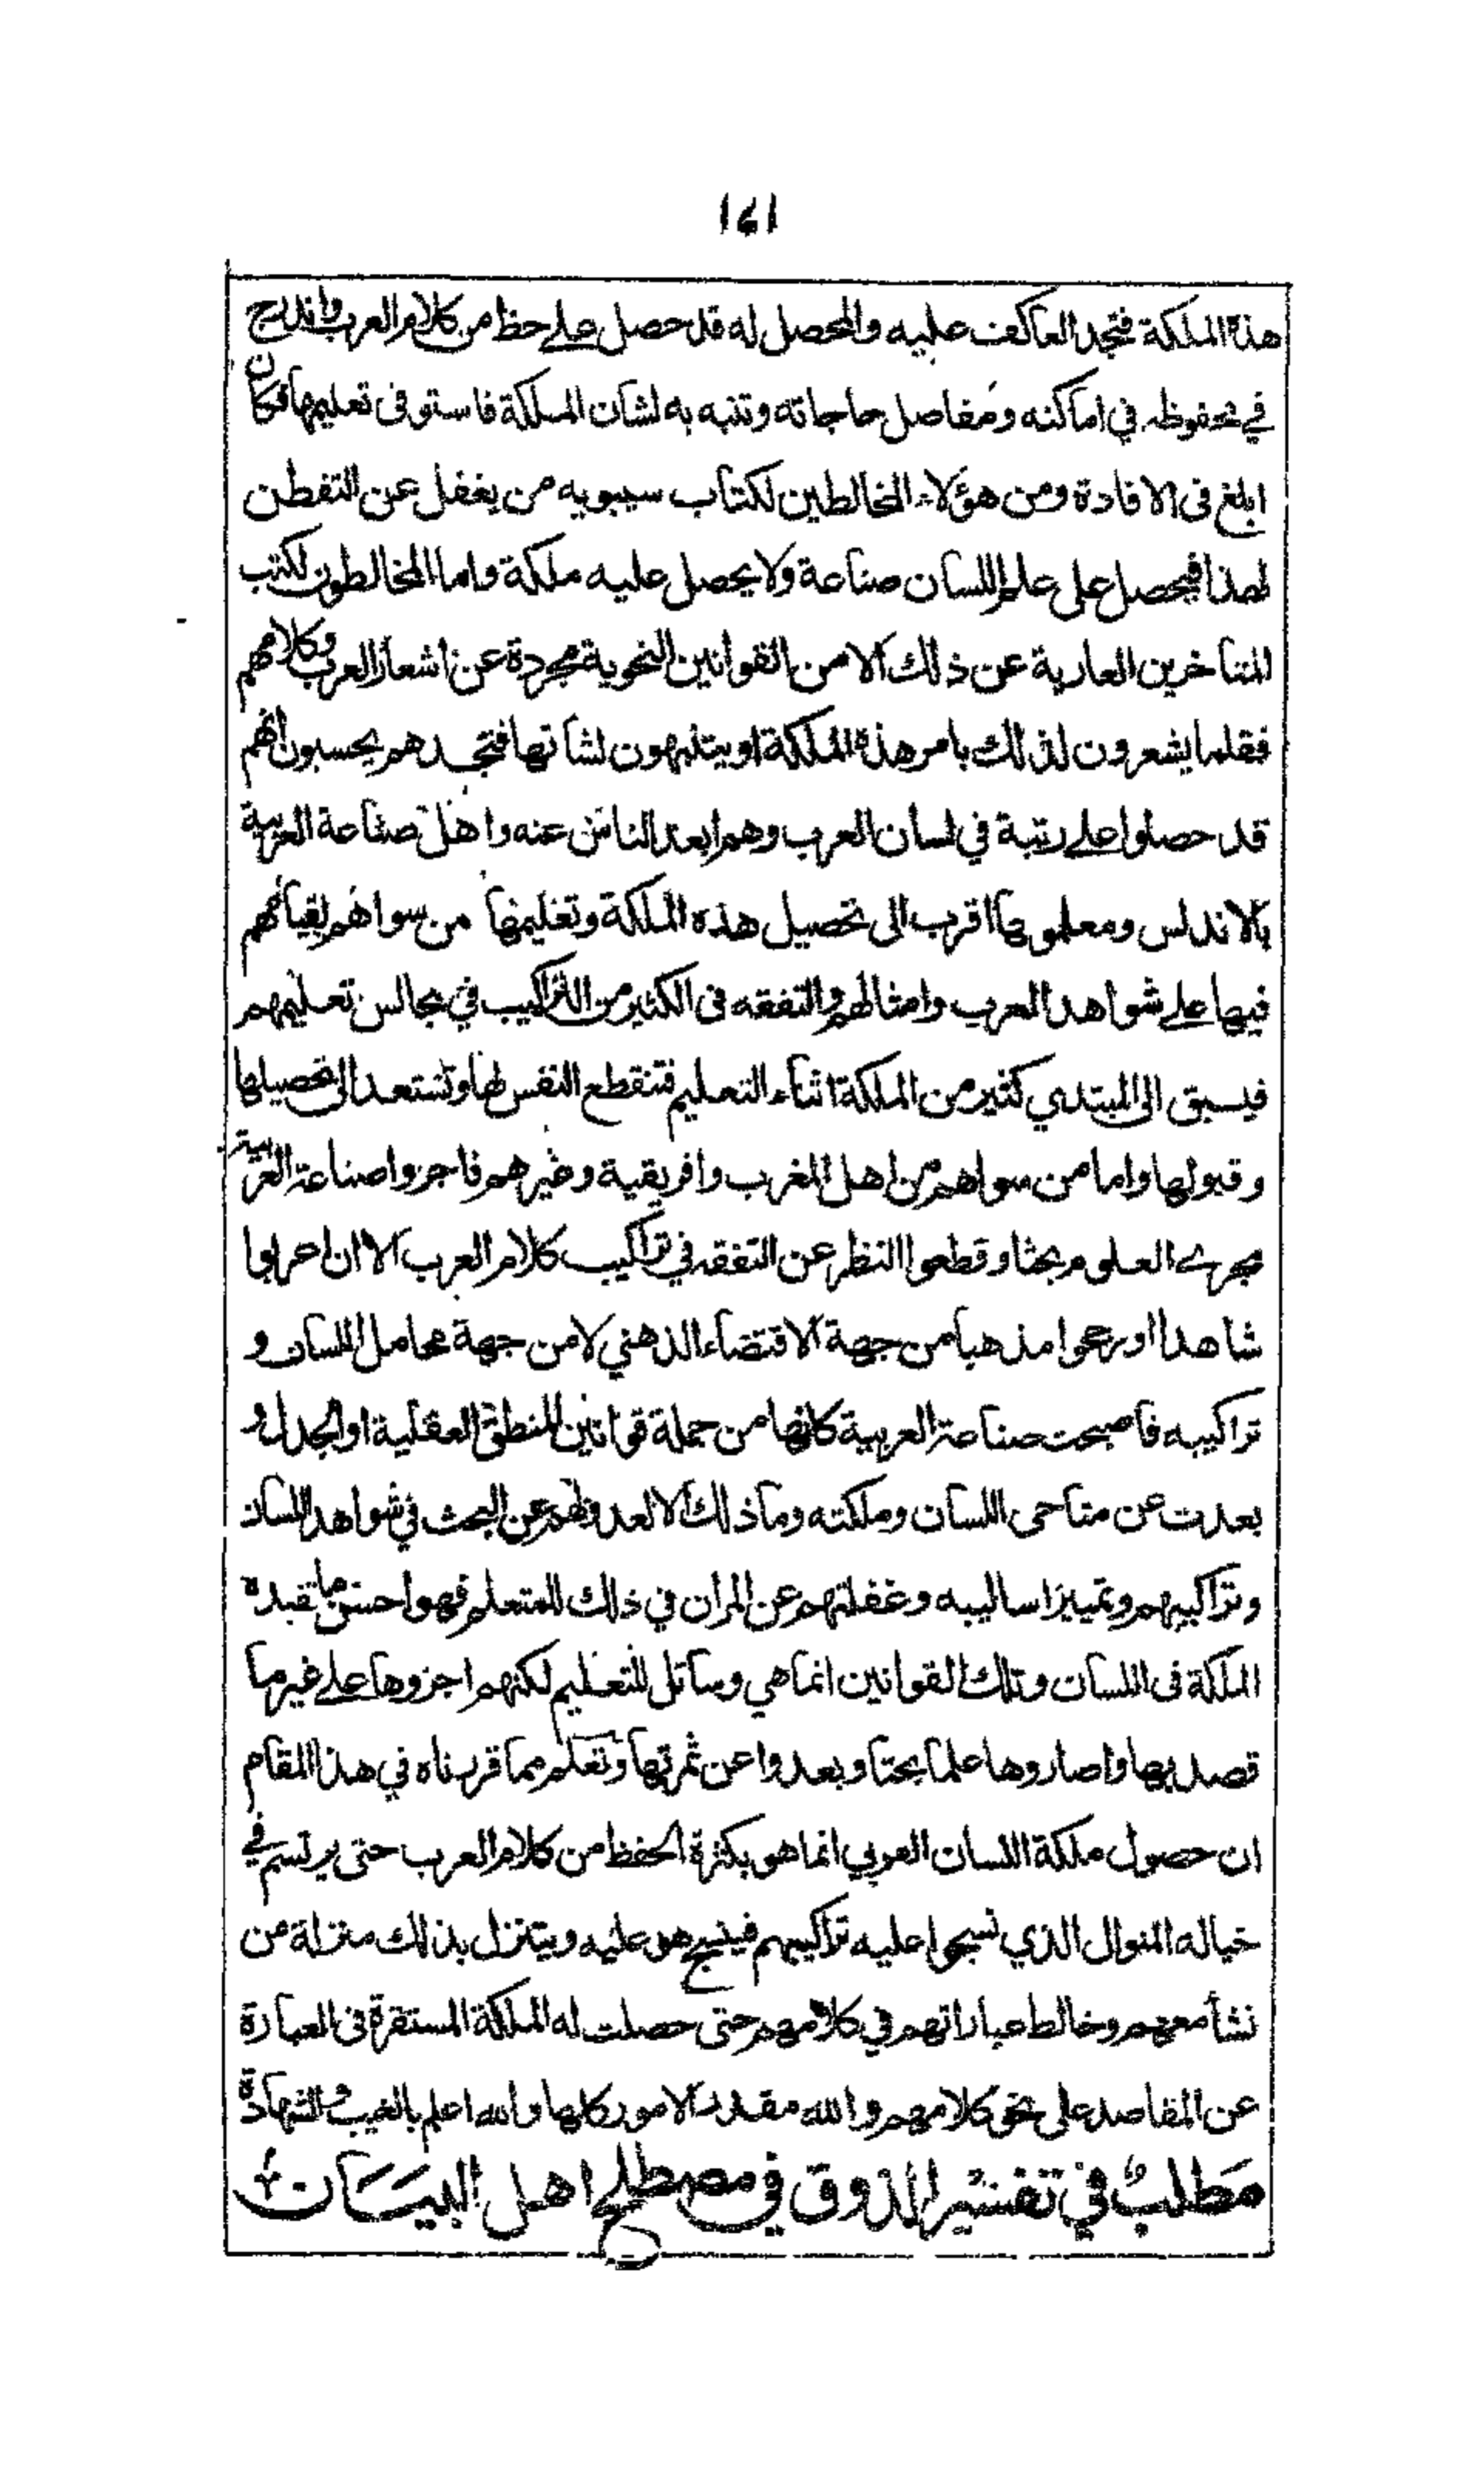 ١٤١
هذه الملكة فتجد العاكف عليه والمحصل له قد حصل على حظ من كلام العرب واندرج
في محفوظه في اماكنه ومفاصل حاجاته وتنبه به لشان الملكة فاستوفى تعليمها فكان
ابلغ في الافادة ومن هؤلاء المخالطين لكتاب سيبويه من يغفل عن التفطن
لهذا فيحصل على علم اللسان صناعة ولا يحصل عليه ملكة واما المخالطون لكتب
المتاخرين العارية عن ذلك الا من القوانين النحوية مجردة عن اشعار العرب وكلامهم
فقلما يشعرون لذلك بامر هذه الملكة او يتنبهون لشانها فتجدهم يحسبون انهم
قد حصلوا على رتبة في لسان العرب وهم ابعد الناس عنه واهل صناعة العربية
بالاندلس ومعلموها اقرب الى تحصيل هذه الملكة وتعليمها من سواهم لقيامهم
فيها على شواهد العرب وامثالهم والتفقه في الكثير من التراكيب في مجالس تعليمهم
فيسبق الى المبتدي كثير من الملكة اثناء التعليم فتنقطع النفس لها وتستعد الى تحصيلها
وقبولها واما من سواهم من اهل المغرب وافريقية وغيرهم فاجروا صناعة العربية
مجرى العلوم بحثا وقطعوا النظر عن التفقه في تراكيب كلام العرب الا ان اعربوا
شاهدا او رجحوا مذهبا من جهة الاقتضاء الذهني لا من جهة محامل اللسان و
تراكيبه فاصبحت صناعة العربية كانها من جملة قوانين المنطق العقلية او الجدل و
بعدت عن مناحي اللسان وملكته وما ذلك الا لعدولهم عن البحث في شواهد اللسان
وتراكيبهم وتمييز اساليبه وغفلتهم عن المران في ذلك للمتعلم فهو احسن ما تفيده
الملكة في اللسان وتلك القوانين انما هي وسائل للتعليم لكنهم اجروها على غير ما
قصد بها واصاروها علما بحتا وبعدوا عن ثمرتها وتعلم مما قررناه في هذا المقام
ان حصول ملكة اللسان العربي انما هو بكثرة الحفظ من كلام العرب حتى يرتسم في
خياله المنوال الذي نسجوا عليه تراكيبهم فينسج هو عليه ويتنزل بذلك منزلة من
نشأ معهم وخالط عباراتهم في كلامهم حتى حصلت له الملكة المستقرة في العبارة
عن المقاصد على نحو كلامهم والله مقدر الامور كلها والله اعلم بالغيب والشهادة
مَطلبٌ في تفسير الذوق في مصطلح اهل البيان